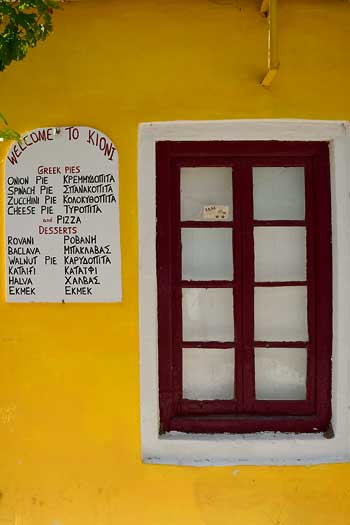 WELCOME TO KIONI
GREEK PIES
ONION PIE ΚΡΕΜΜΥΔΟΠΙΤΑ
SPINACH PIE ΣΠΑΝΑΚΟΠΙΤΑ
ZUCCHINI PIE ΚΟΛΟΚΥΘΟΠΙΤΑ
CHEESE PIE ΤΥΡΟΠΙΤΑ
and PIZZA
DESSERTS
ROVANI ΡΟΒΑΝΗ
BACLAVA ΜΠΑΚΛΑΒΑΣ
WALNUT PIE ΚΑΡΥΔΟΠΙΤΑ
KATAIFI ΚΑΤΑΪΦΙ
HALVA ΧΑΛΒΑΣ
EKMEK ΕΚΜΕΚ